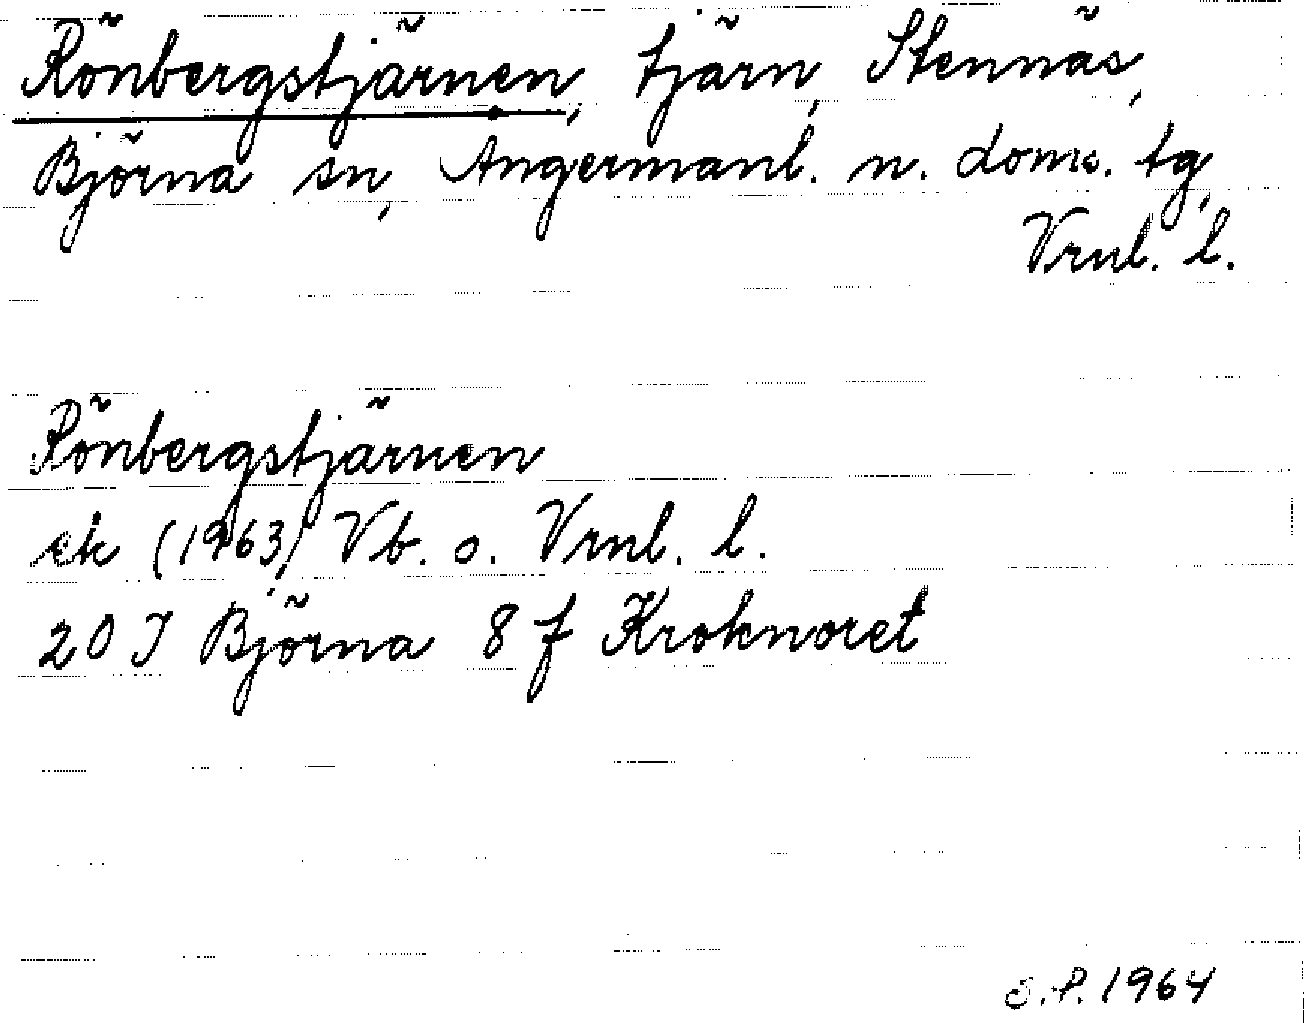 Rönbergstjärnen, tjärn, Stennäs,
Björna sn, Ångermanl. n. doms. tg,
Vrnl. l.
Rönbergstjärnen
ek (1963) Vb. o. Vrnl. l.
20 J Björna 8 f Kroknoret
S.P. 1964